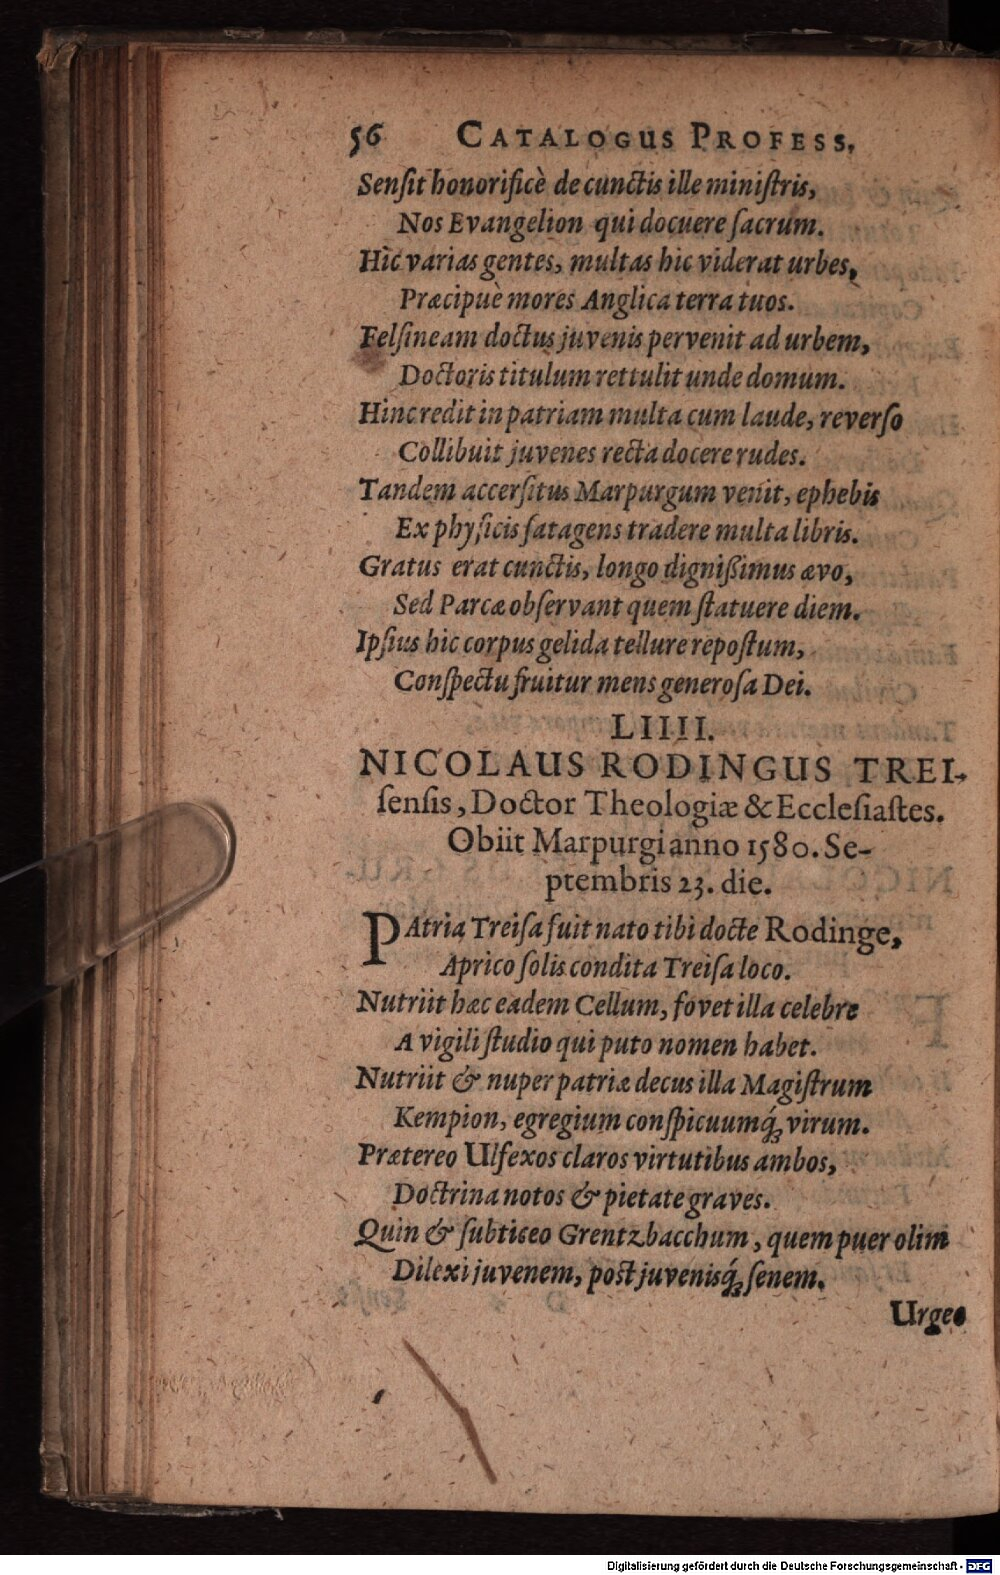 56 CATALOGUS PROFESS.
Senſit honorificè de cunctis ille miniſtris,
Nos Evangelion qui docuere ſacrum.
Hic varias gentes, multas hic viderat urbes,
Præcipuè mores Anglica terra tuos.
Felſineam doctus juvenis pervenit ad urbem,
Doctoris titulum rettulit unde domum.
Hinc redit in patriam multa cum laude, reverſo
Collibuit juvenes recta docere rudes.
Tandem accerſitus Marpurgum venit, ephebis
Ex phyſicis ſatagens tradere multa libris.
Gratus erat cunctis, longo digniſſimus ævo,
Sed Parcæ obſervant quem ſtatuere diem.
Ipſius hic corpus gelida tellure repoſtum,
Conſpectu fruitur mens generoſa Dei.
LIIII.
NICOLAUS RODINGUS TREI-
ſenſis, Doctor Theologiæ & Eccleſiaſtes.
Obiit Marpurgi anno 1580. Se-
ptembris 23. die.
PAtria Treiſa fuit nato tibi docte Rodinge,
Aprico ſolis condita Treiſa loco.
Nutriit hæc eadem Cellum, fovet illa celebre
A vigili ſtudio qui puto nomen habet.
Nutriit & nuper patriæ decus illa Magiſtrum
Kempion, egregium conſpicuumq́; virum.
Prætereo Ulfexos claros virtutibus ambos,
Doctrina notos & pietate graves.
Quin & ſubticeo Grentzbacchum, quem puer olim
Dilexi juvenem, poſt juvenisq́; ſenem.
Urgeo
Digitalisierung gefördert durch die Deutsche Forschungsgemeinschaft - DFG